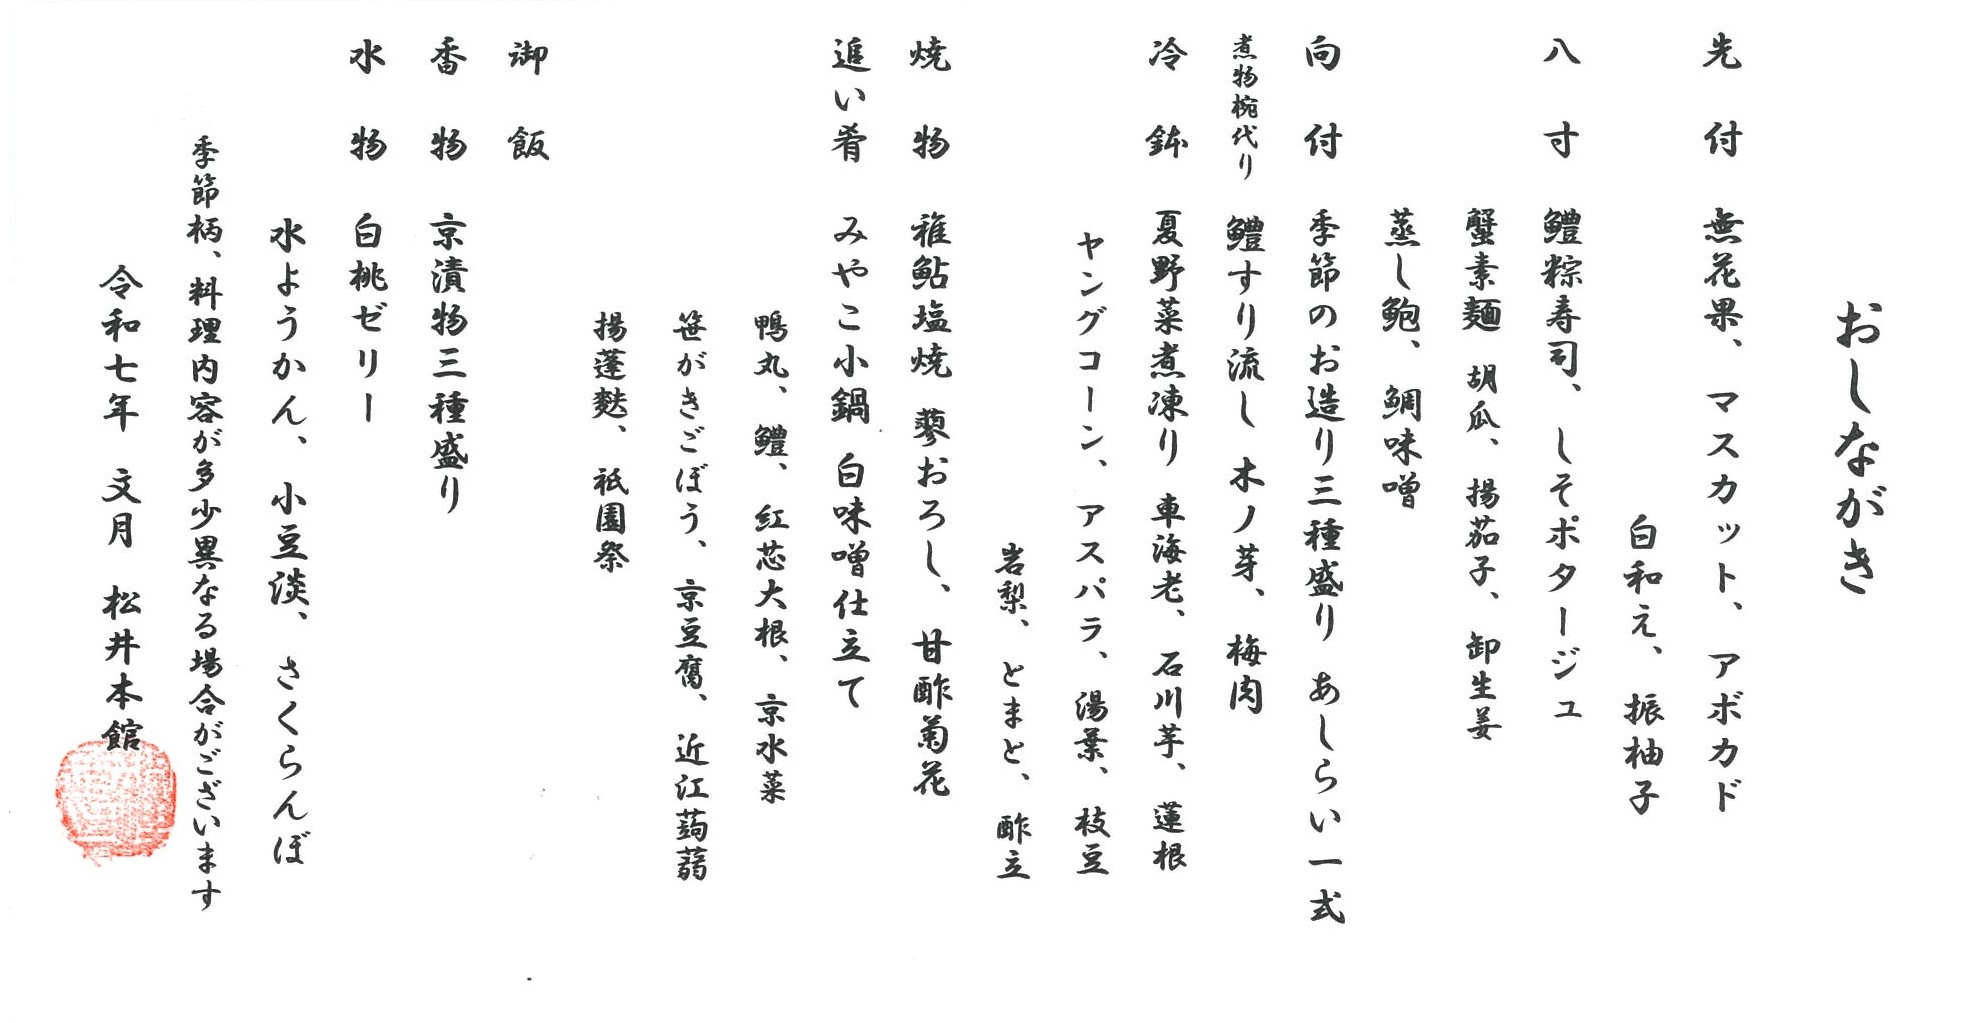 おしながき
先付 無花果、マスカット、アボカド
白和え、振柚子
八寸 鱧粽寿司、しそポタージュ
蟹素麺 胡瓜、揚茄子、卸生姜
蒸し鮑、鯛味噌
向付 季節のお造り三種盛り あしらい一式
煮物椀代り 鱧すり流し 木ノ芽、梅肉
冷鉢 夏野菜煮凍り 車海老、石川芋、蓮根
ヤングコーン、アスパラ、湯葉、枝豆
岩梨、とまと、酢立
焼物 稚鮎塩焼 蓼おろし、甘酢菊花
追い肴 みやこ小鍋 白味噌仕立て
鴨丸、鱧、紅芯大根、京水菜
笹がきごぼう、京豆腐、近江蒟蒻
揚蓬麩、祇園祭
御飯
香物 京漬物三種盛り
水物 白桃ゼリー
水ようかん、小豆淡、さくらんぼ
季節柄、料理内容が多少異なる場合がございます
令和七年 文月 松井本館